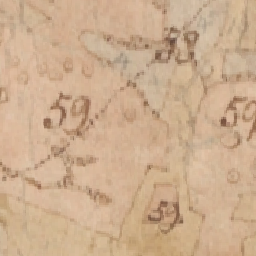 58
59
59
59